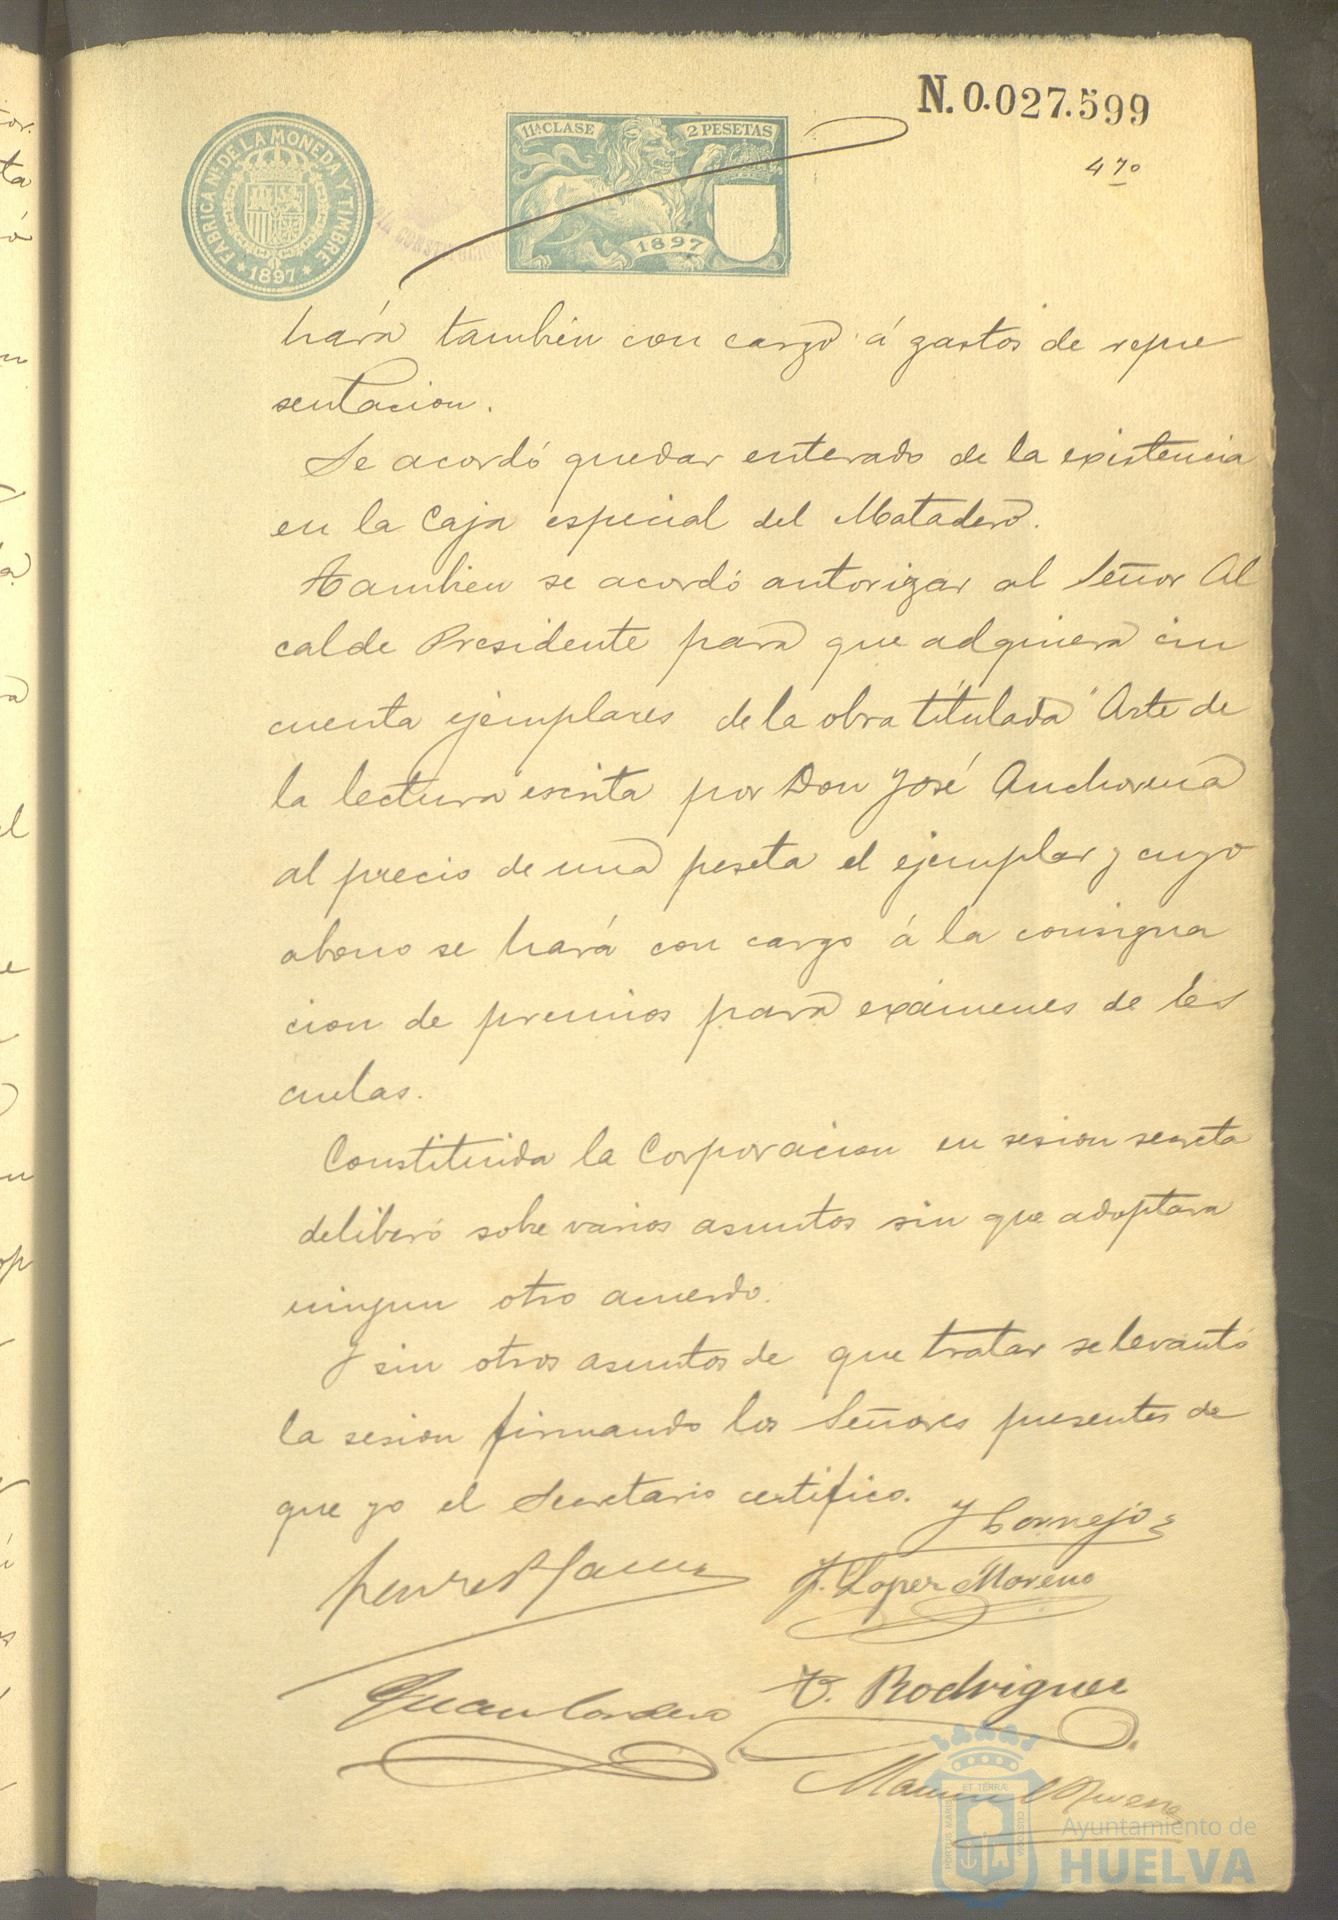 N. 0.027.599
47º
FÁBRICA Nal DE LA MONEDA Y TIMBRE
* 1897 *
11ª CLASE
2 PESETAS
1897
hará tambien con cargo á gastos de repre
sentacion.
Se acordó quedar enterado de la existencia
en la Caja especial del Matadero.
Tambien se acordó autorizar al Señor Al
calde Presidente para que adquiera cin
cuenta ejemplares de la obra titulada "Arte de
la lectura" escrita por Don José Anchorena
al precio de una peseta el ejemplar y cuyo
abono se hará con cargo á la consigna
cion de premios para exámenes de Es
cuelas.
Constituida la Corporacion en sesion secreta
deliberó sobre varios asuntos sin que adoptara
ningun otro acuerdo.
Y sin otros asuntos de que tratar se levantó
la sesion firmando los Señores presentes de
que yo el Secretario certifico.
Y Cornejo
J. Lopez Moreno
Juan Cordero
T. Rodriguez
PORTUS MARIS ET TERRÆ CUSTODIA
Ayuntamiento de
HUELVA